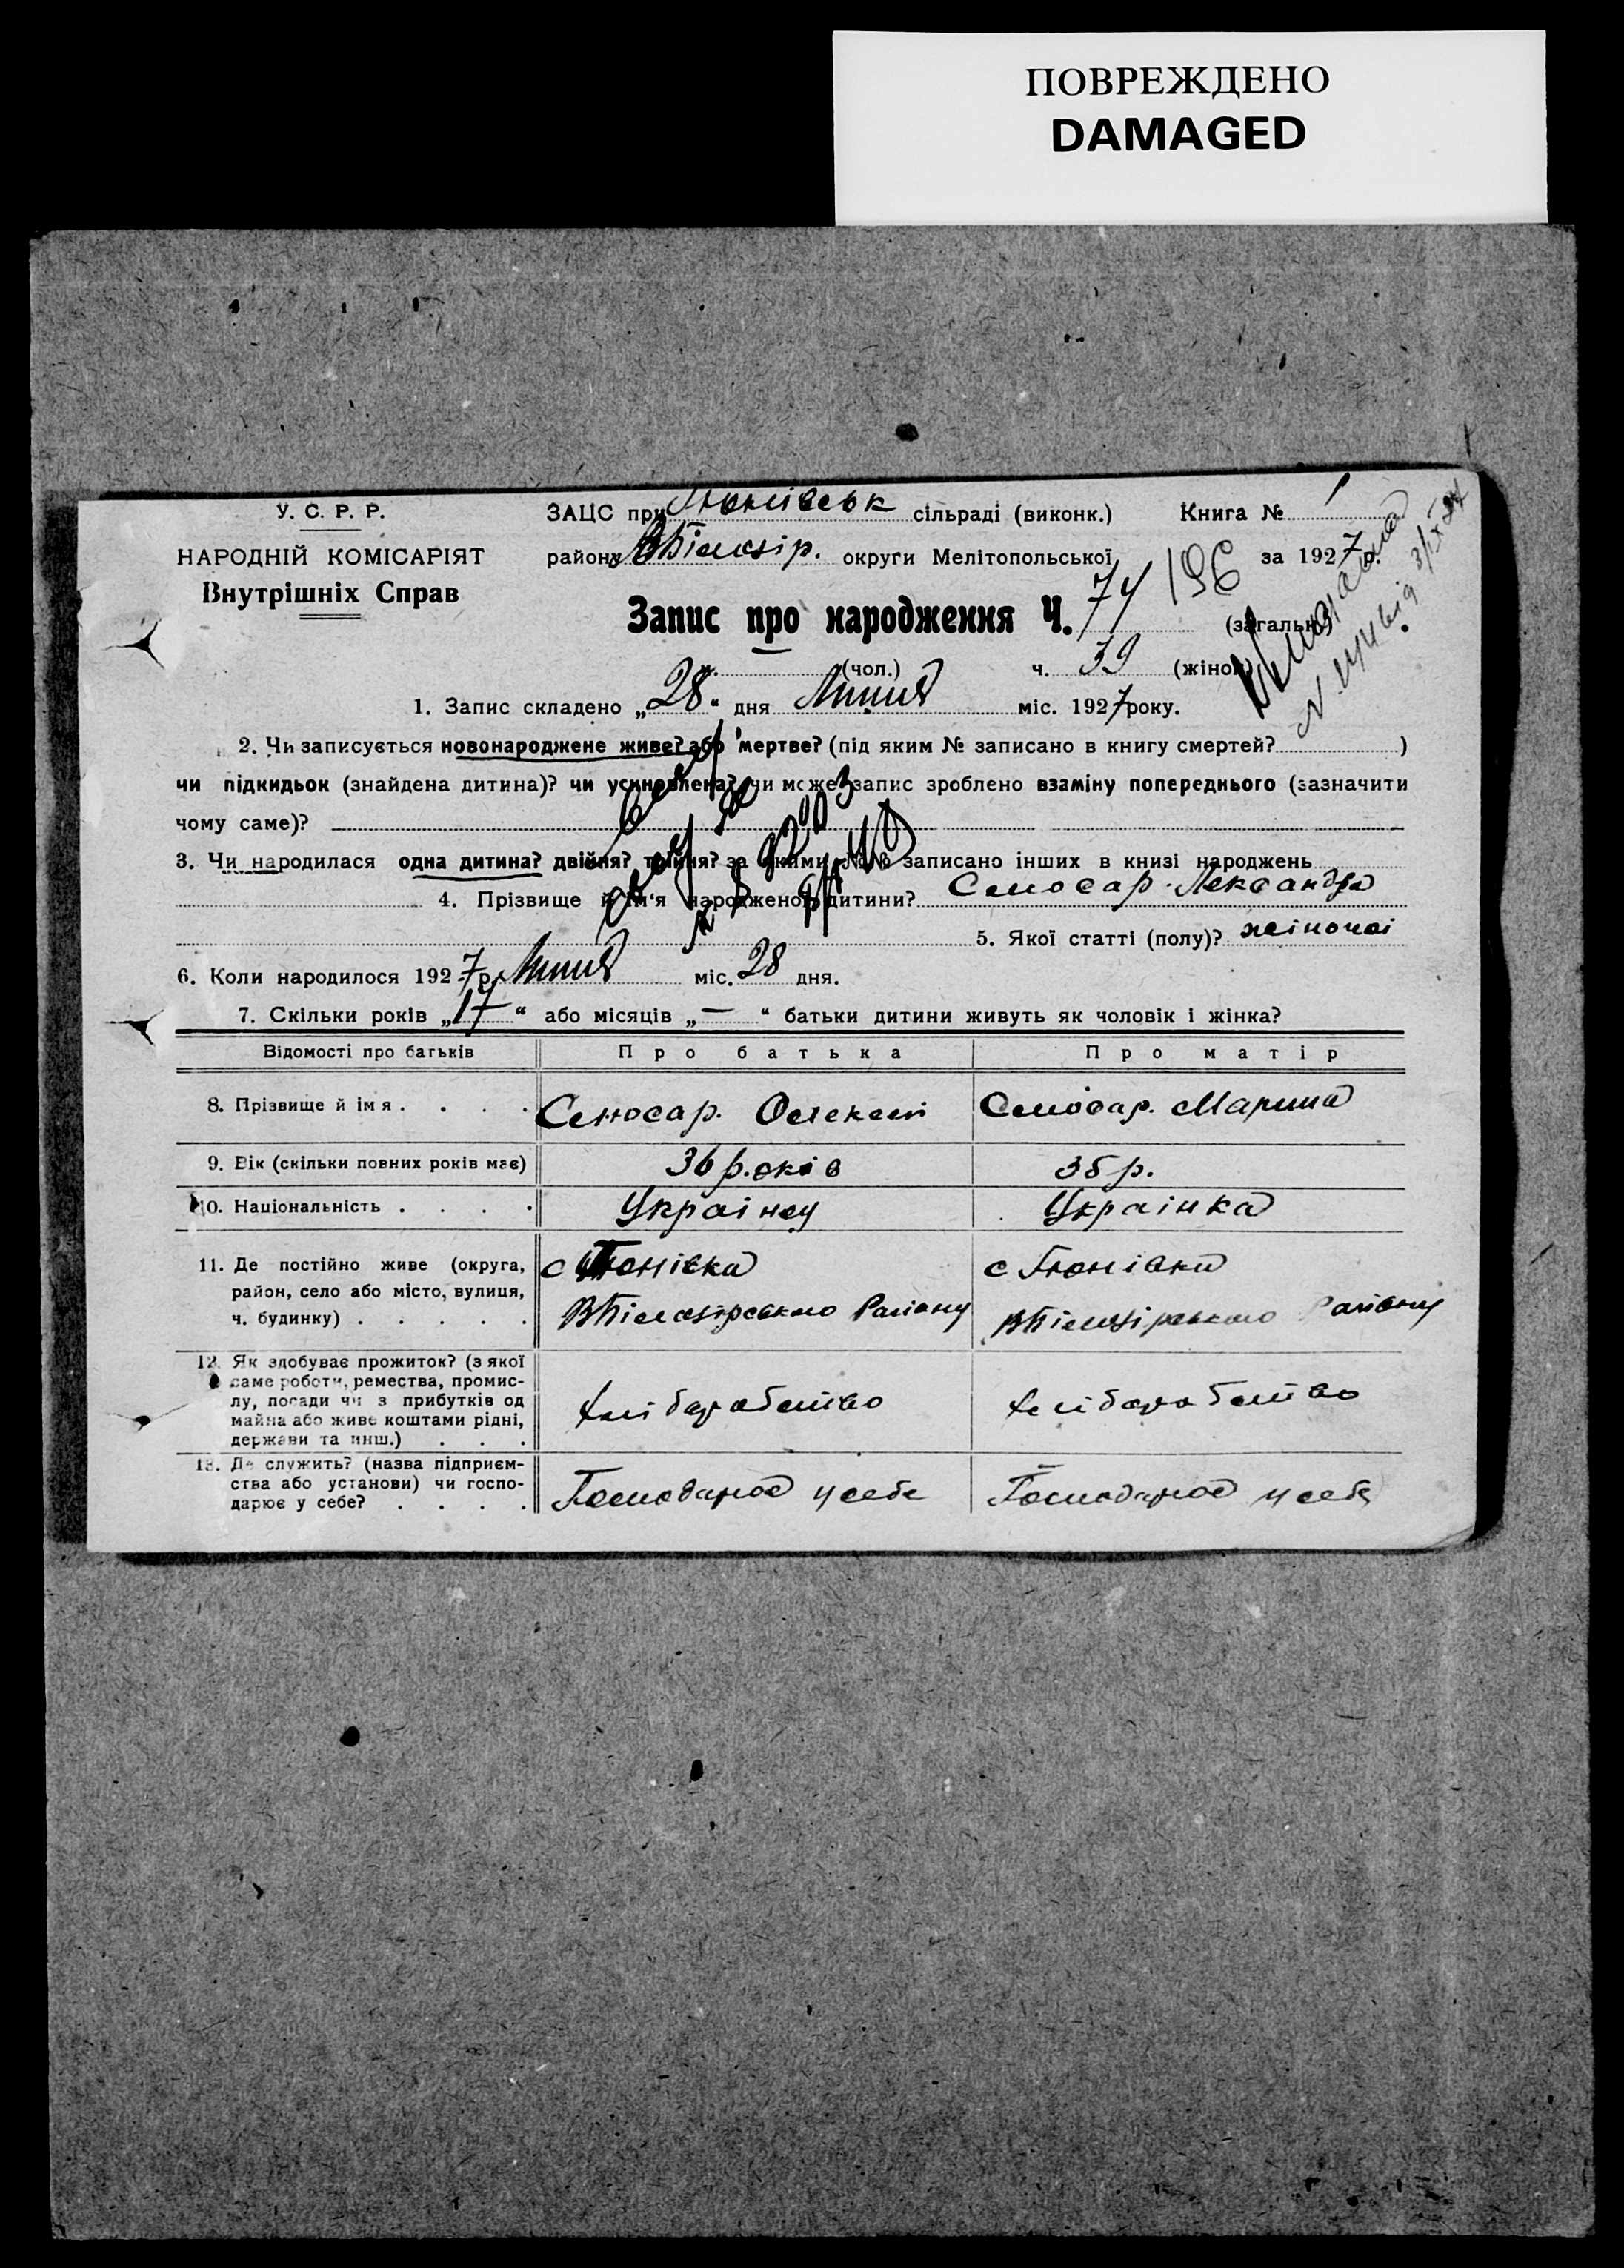 ПОВРЕЖДЕНО
DAMAGED
У. С. Р. Р.
НАРОДНІЙ КОМІСАРІЯТ
Внутрішніх Справ
ЗАЦС при Тюнівськ сільраді (виконк.) Книга № 1
району ВБілозір. округи Мелітопольської за 1927 р.
Запис про народження Ч. 74 196 (загальн.)
ч. (чол.) ч. 39 (жіноч.)
1. Запис складено „28“ дня Липня міс. 1927 року.
2. Чи записується новонароджене живе? або мертве? (під яким № записано в книгу смертей? )
чи підкидьок (знайдена дитина)? чи усиновлена? чи може запис зроблено взаміну попереднього (зазначити
чому саме)?
3. Чи народилася одна дитина? двійня? трійня? за якими №№ записано інших в книзі народжень
4. Прізвище й ім'я народженої дитини? Слюсар. Лександра
5. Якої статті (полу)? жіночої
6. Коли народилося 1927 р. Липня міс. 28 дня.
7. Скільки років „17“ або місяців „—“ батьки дитини живуть як чоловік і жінка?
Відомості про батьків Про батька Про матір
8. Прізвище й ім я . . . . Слюсар. Олексій Слюсар. Марина
9. Вік (скільки повних років має) 36 р.оків 35 р.
10. Національність . . . . Українец Українка
11. Де постійно живе (округа,
район, село або місто, вулиця,
ч. будинку) . . . . .
с Тюнівка
ВБілозірського Района
с Тюнівка
ВБілозірського Района
12. Як здобуває прожиток? (з якої
саме роботи, ремества, промис-
лу, посади чи з прибутків од
майна або живе коштами рідні,
держави та инш.) . . .
хліборобство
хліборобство
13. Де служить? (назва підприєм-
ства або установи) чи госпо-
дарює у себе? . . . .
Господарює у себе
Господарює у себе